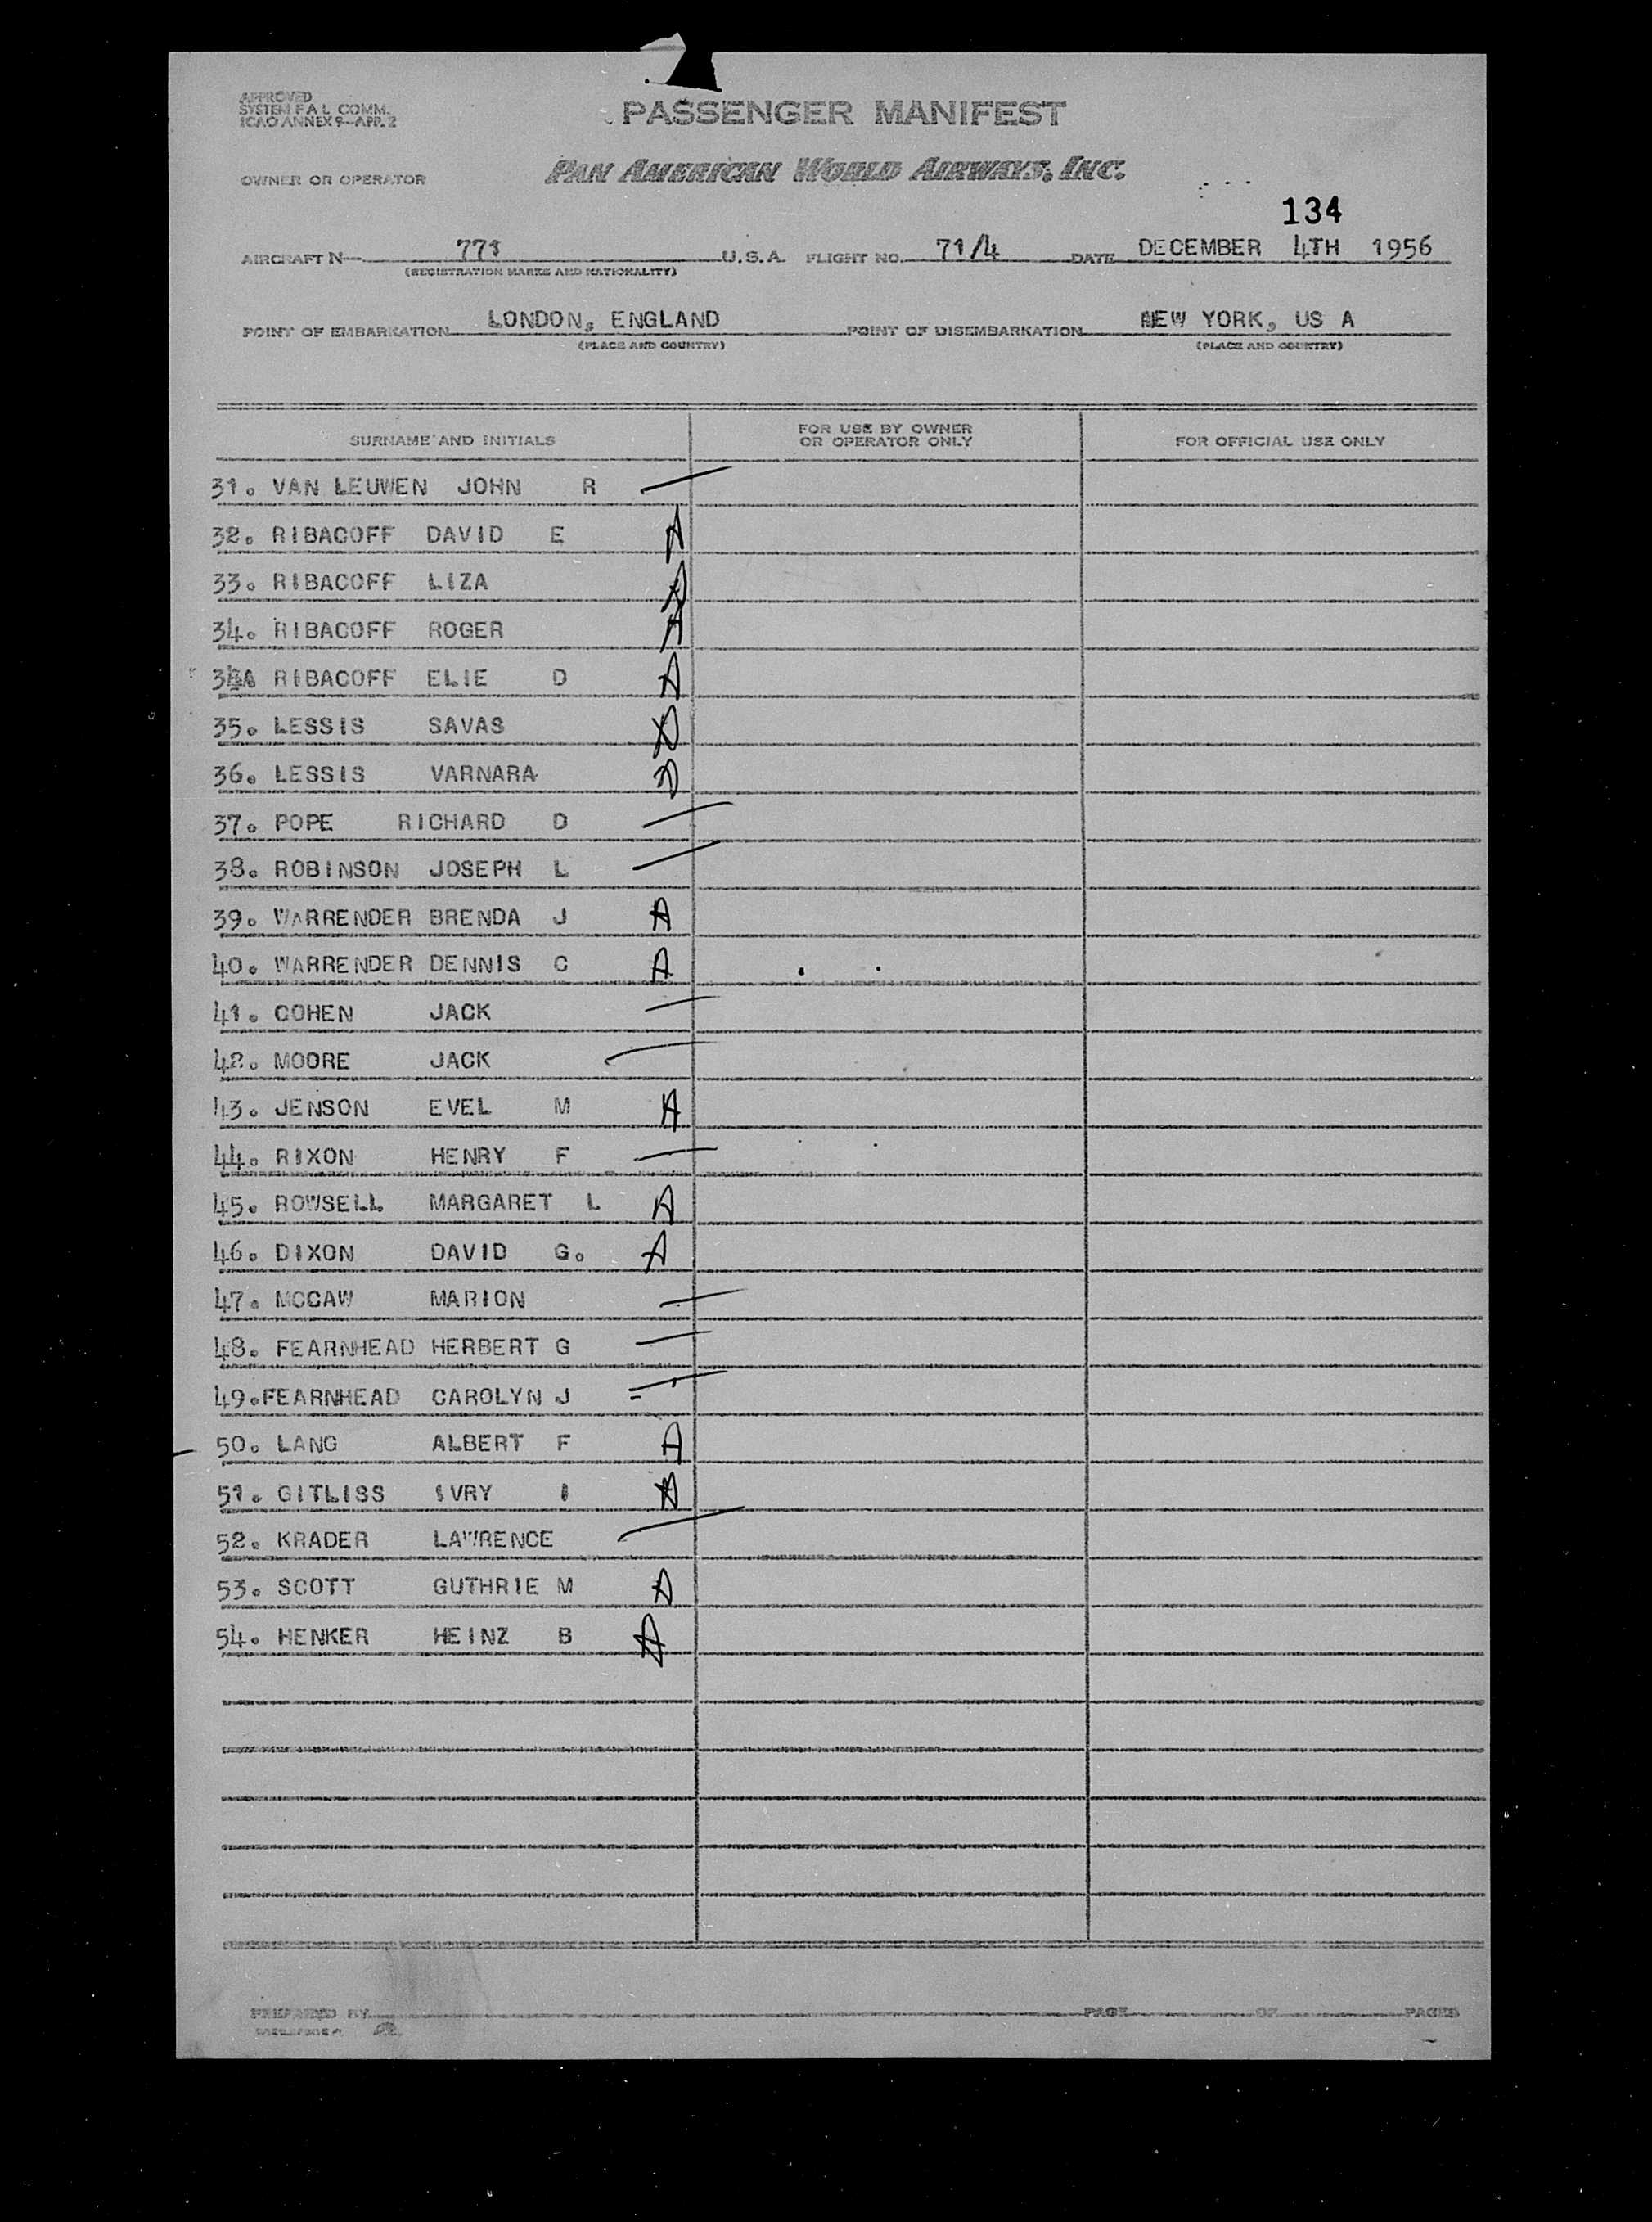 APPROVED
SYSTEM F.A.L. COMM.
ICAO ANNEX 9—APP. 2
PASSENGER MANIFEST
OWNER OR OPERATOR PAN AMERICAN WORLD AIRWAYS, INC.
134
AIRCRAFT N— 771 U.S.A. FLIGHT NO. 71/4 DATE DECEMBER 4TH 1956
(REGISTRATION MARKS AND NATIONALITY)
POINT OF EMBARKATION LONDON, ENGLAND POINT OF DISEMBARKATION NEW YORK, US A
(PLACE AND COUNTRY) (PLACE AND COUNTRY)
SURNAME AND INITIALS FOR USE BY OWNER OR OPERATOR ONLY FOR OFFICIAL USE ONLY
31. VAN LEUWEN JOHN R
32. RIBACOFF DAVID E A
33. RIBACOFF LIZA A
34. RIBACOFF ROGER A
34A RIBACOFF ELIE D A
35. LESSIS SAVAS A
36. LESSIS VARNARA A
37. POPE RICHARD D
38. ROBINSON JOSEPH L
39. WARRENDER BRENDA J A
40. WARRENDER DENNIS C A
41. COHEN JACK
42. MOORE JACK
43. JENSON EVEL M A
44. RIXON HENRY F
45. ROWSELL MARGARET L A
46. DIXON DAVID G. A
47. MCCAW MARION
48. FEARNHEAD HERBERT G
49.FEARNHEAD CAROLYN J
50. LANG ALBERT F A
51. GITLISS IVRY I A
52. KRADER LAWRENCE
53. SCOTT GUTHRIE M A
54. HENKER HEINZ B A
PREPARED BY PAGE OF PAGES